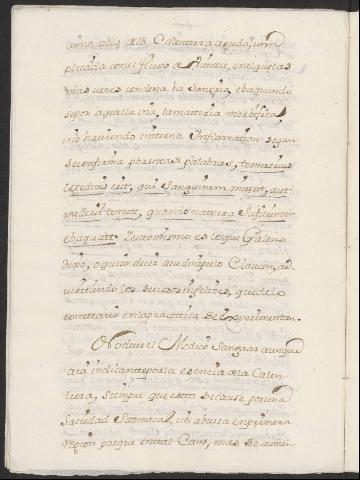 como abla de la Calentura aguda, com
plicada con el fluxo de Vientre, en el que las
mas veces condena la Sangria, ebaquando
se por aquella via, la matteria morbifica,
no haviendo interna Inflamation segun
se confirma por estas palabras, temerarius
et est, qui Sanguinem mittit, aut
quando natura
ebaquatt. lo mismo es lo que Galeno
dexo, o quiso decir a su dicipulo Glaucon, ad
virttiendo los sucesos infelizes, que de lo
contrario en la practica se experimentan.
No deve el Medico Sangrar aunque
la indicante por la esencia de la Calen
tura, siempre que esta decause por una
Saciedad Stomacal, ù ôbstura en primera
region porque en tal Caso, mas se aumen